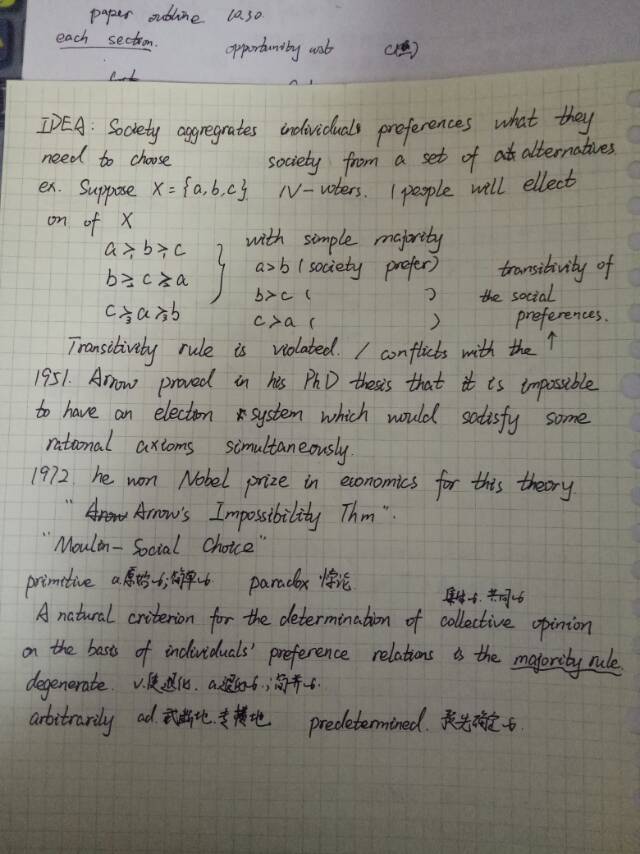 paper outline 10.30.
each section. opportunity
IDEA: Society aggregrates individuals preferences what they
need to choose society from a set of alternatives.
ex. Suppose X = {a, b, c}. N-voters. 1 people will ellect
on of X
a ≥₁ b ≥₁ c } with simple majority
b ≥₂ c ≥₂ a a>b (society prefer) transitivity of
c ≥₃ a ≥₃ b b>c ( ) the social
c>a ( ) preferences.
Transitivity rule is violated. / conflicts with the ↑
1951. Arrow proved in his PhD thesis that it is impossible
to have an election system which would satisfy some
rational axioms simultaneously.
1972 he won Nobel prize in economics for this theory.
"Arrow's Impossibility Thm".
"Moulin - Social Choice"
primitive a.原始的;简单的 paradox 悖论
集体的.共同的
A natural criterion for the determination of collective opinion
on the basis of individuals' preference relations is the majority rule.
degenerate. v.使退化. a.退化的.;
arbitrarily ad.武断地.专横地 predetermined. 预先确定的.